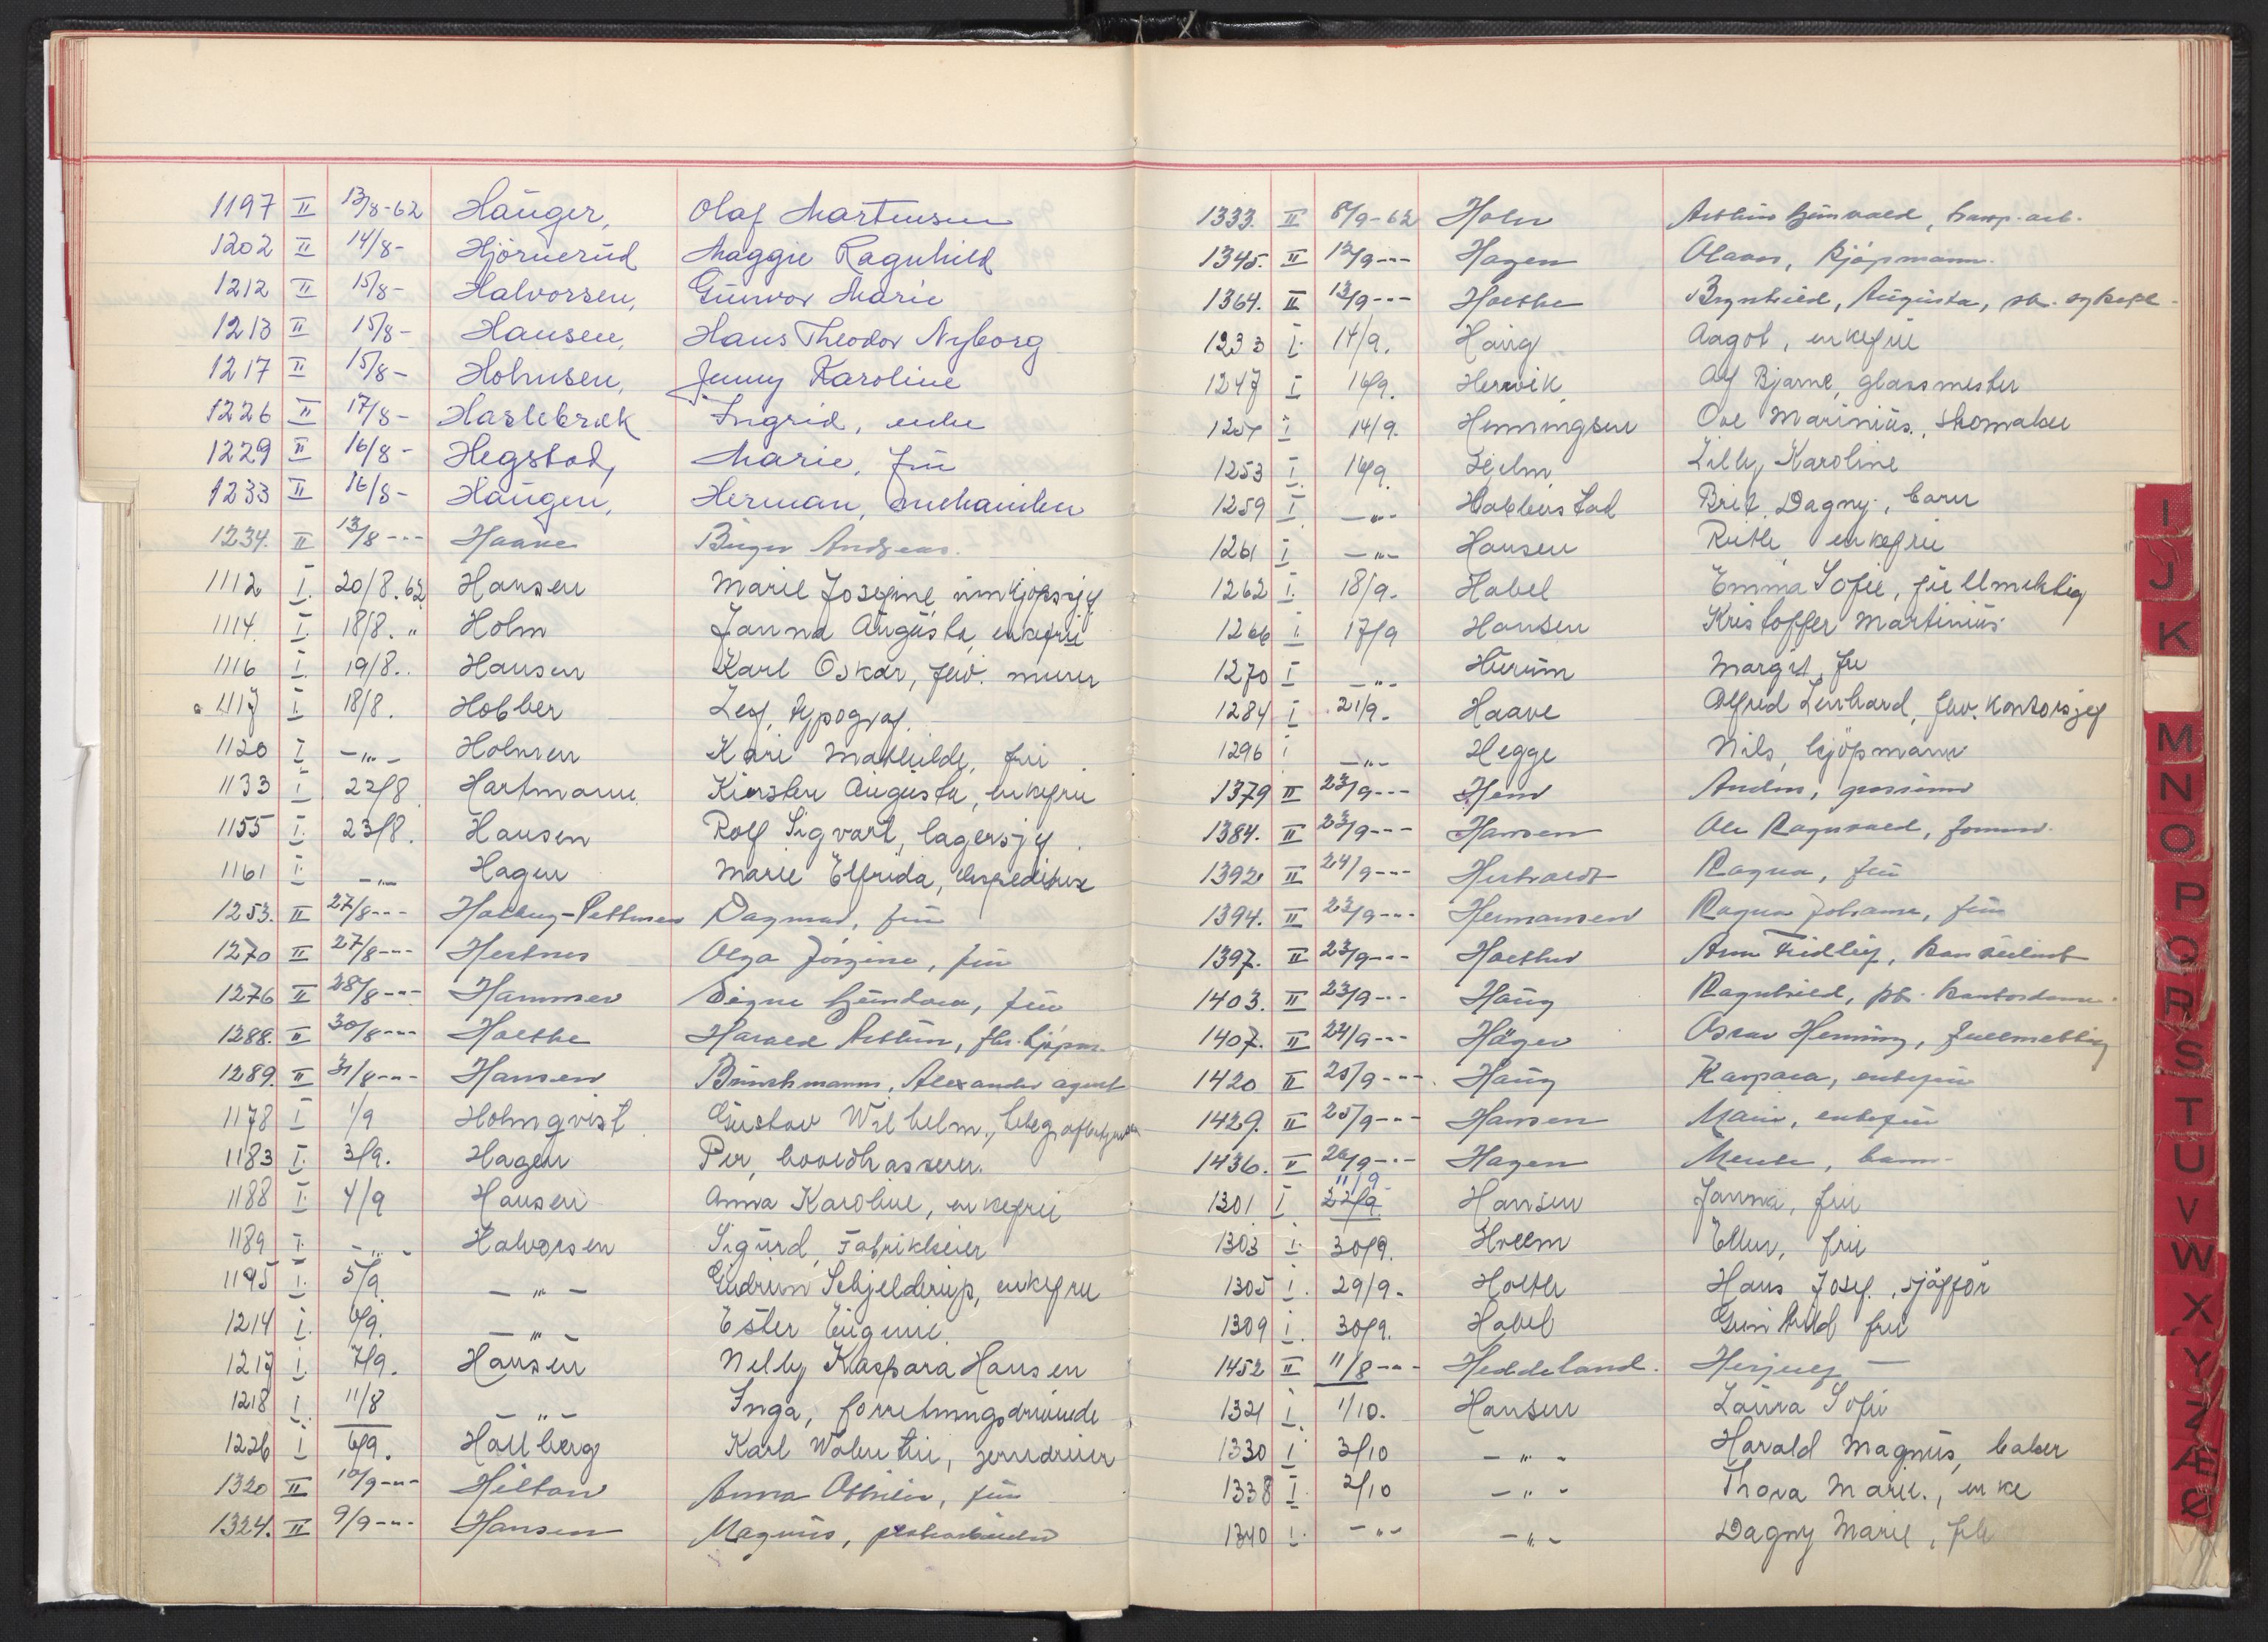 1197 II 13/8-62 Hauger, Olaf Martensen
1202 II 14/8- Hjørnerud Maggie Ragnhild
1212 II 15/8- Halvorsen, Gunvor Marie
1213 II 15/8- Hansen, Hans Theodor Nyborg
1217 II 15/8- Holmsen, Jenny Karoline
1226 II 17/8- Haslebrek Ingrid, enke
1229 II 16/8- Hegstad, Marie, fru
1233 II 16/8- Haugen, Herman, mekaniker
1234. II 13/8 --- Haave Birger Andreas.
1112 I. 20/8.62 Hansen Marie Josefine, innkjøpssjef
1114. I. 18/8. " Holm Janna Augusta, enkefru
1116 I. 19/8.. Hansen Karl Oskar, fhv. murer
1117 I 18/8. Hobber Leif, typograf.
1120 I -"- Holmsen Kari Mathilde, fru
1133 I 22/8 Hartmann Kirsten Augusta, enkefru
1155 I. 23/8. Hansen Rolf Sigvart, lagersjef.
1161 I. -"- Hagen Marie Elfrida, ekspeditrise
1253. II 27/8--- Dagmar, fru
1270 II 27/8--- Hertnes Olga Jørgine, fru
1276 II 28/8--- Hammer Signe Gundora, fru
1288. II 30/8--- Holthe Harald Arthur, fhv. kjøpm.
1289. II 31/8--- Hansen Bunchmann, Alexander agent
1178 I 1/9 Holmqvist Gustav Wilhelm,
1183 I. 3/9. Hagen Per, hovedkasserer.
1188 I. 4/9 Hansen Anna Karoline, enkefru
1189 I. -"- Halvorsen Sigurd, Fabrikkeier
1195 I. 5/9. -"- Gudrun Schjelderup, enkefru
1214 I. 6/9. -"- Ester Eugenie.
1217 I. 7/9. Hansen Nelly Kaspara Hansen
1218 I 11/8 " Inga, forretningsdrivende
1226 I 6/9. Hallberg Karl Valentin, jerndreier
1320 II 10/9--- Hilton Anna Othilie, fru
1324. II 9/9--- Hansen Magnus,
1333. II 8/9-62 Holm Arthur Gunvald,
1345. II 12/9--- Hagen Olaus, kjøpmann.
1364. II 13/9--- Holthe Brynhild, Augusta,
1233 I. 14/9. Haug Aagot, enkefru
1247 I 16/9. Hervik Alf Bjarne, glassmester
I 14/9. Henningsen Ove Marinius, skomaker
1253 I. 16/9. Hjelm Lilly Karoline
1259 I. -"- Habberstad Brit Dagny, barn
1261 I -"- Hansen Ruth enkefru
1262 I. 18/9. Habel Emma Sofie, fullmektig
1266 I. 17/9 Hansen Kristoffer Martinius
1270 I -"- Hurum Margit, fru
1284 I 21/9. Haave Alfred Lenhard, fhv. kontorsjef
1296 I -"- Hegge Nils, kjøpmann
1379 II 23/9--- Hem Anders,
1384. II 23/9--- Hansen Ole Ragnvald,
1392 II 24/9--- Ragna, fru
1394. II 23/9--- Hermansen Ragna Johanne, fru
1397. II 23/9--- Holther Arne Fridleif,
1403. II 23/9--- Haug Ragnhild,
1407. II 24/9--- Häger Oscar Henning, fullmektig
1420 II 25/9--- Haug Kaspara, enkefru
1429. II 25/9--- Hansen Marie, enkefru
1436. II 26/9--- Hagen barn-
11/9
1301 I 22/9. Hansen Janna, fru
1303 I. 30/9. Hvelm Ellen, fru
1305 I. 29/9. Holth Hans Josef, sjåffør
1309 I. 30/9. Habel Gunhild fru
1452 II 11/8--- Heddeland. Herjuly —
1321 I. 1/10. Hansen Laura Sofie
1330 I 3/10 -"- Harald Magnus, baker
1338 I. 2/10 -"- Thora Marie., enke
1340 I. -"- -"- Dagny Marie,
I
J
K
M
N
O
P
Q
R
S
T
U
V
W
X
Y
Z
Æ
Ø